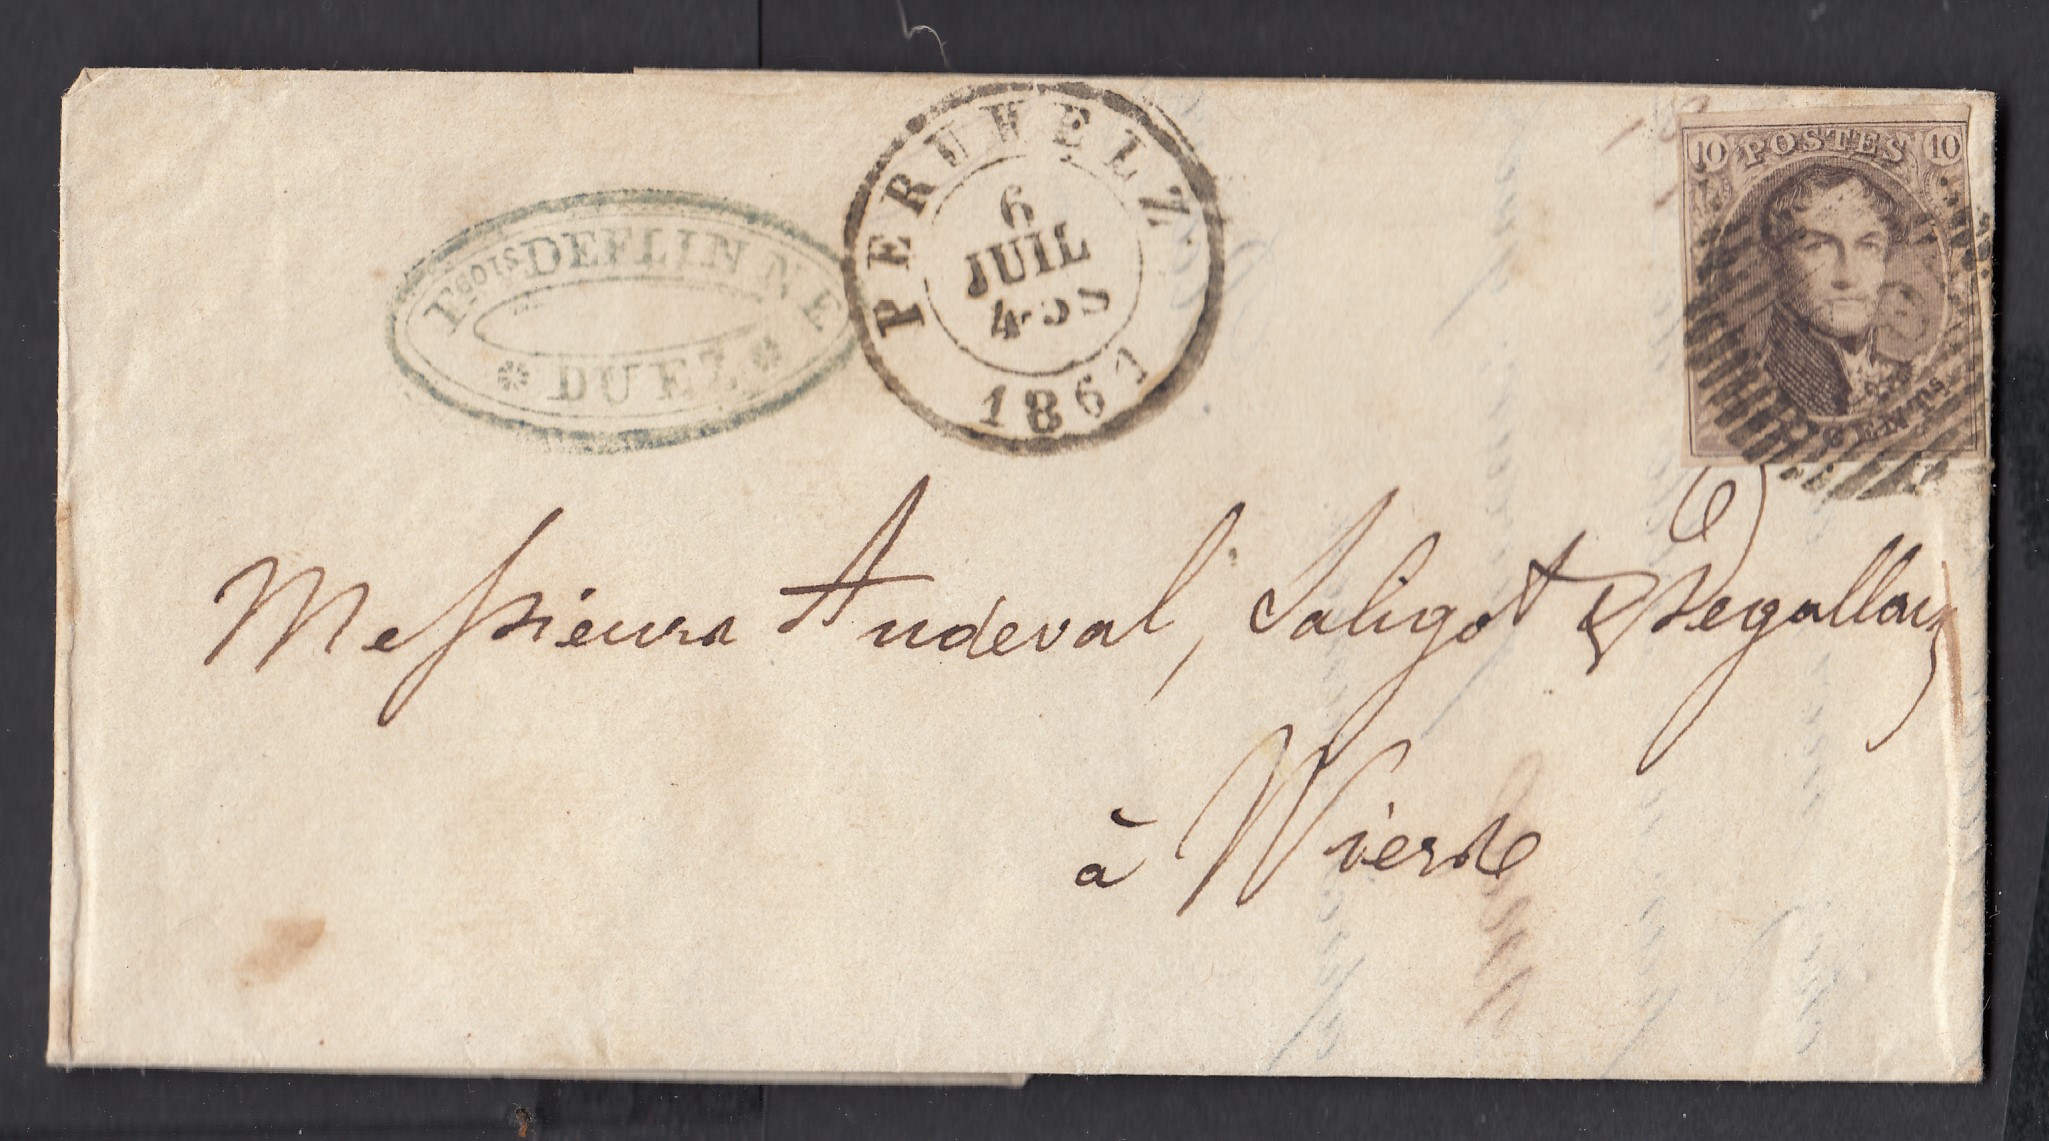 Fçois DEFLINNE
DUEZ
PERUWELZ
6
JUIL
4-5S
1861
10 POSTES 10
CENTS
Messieurs Andeval, Saligot &
à Wierde